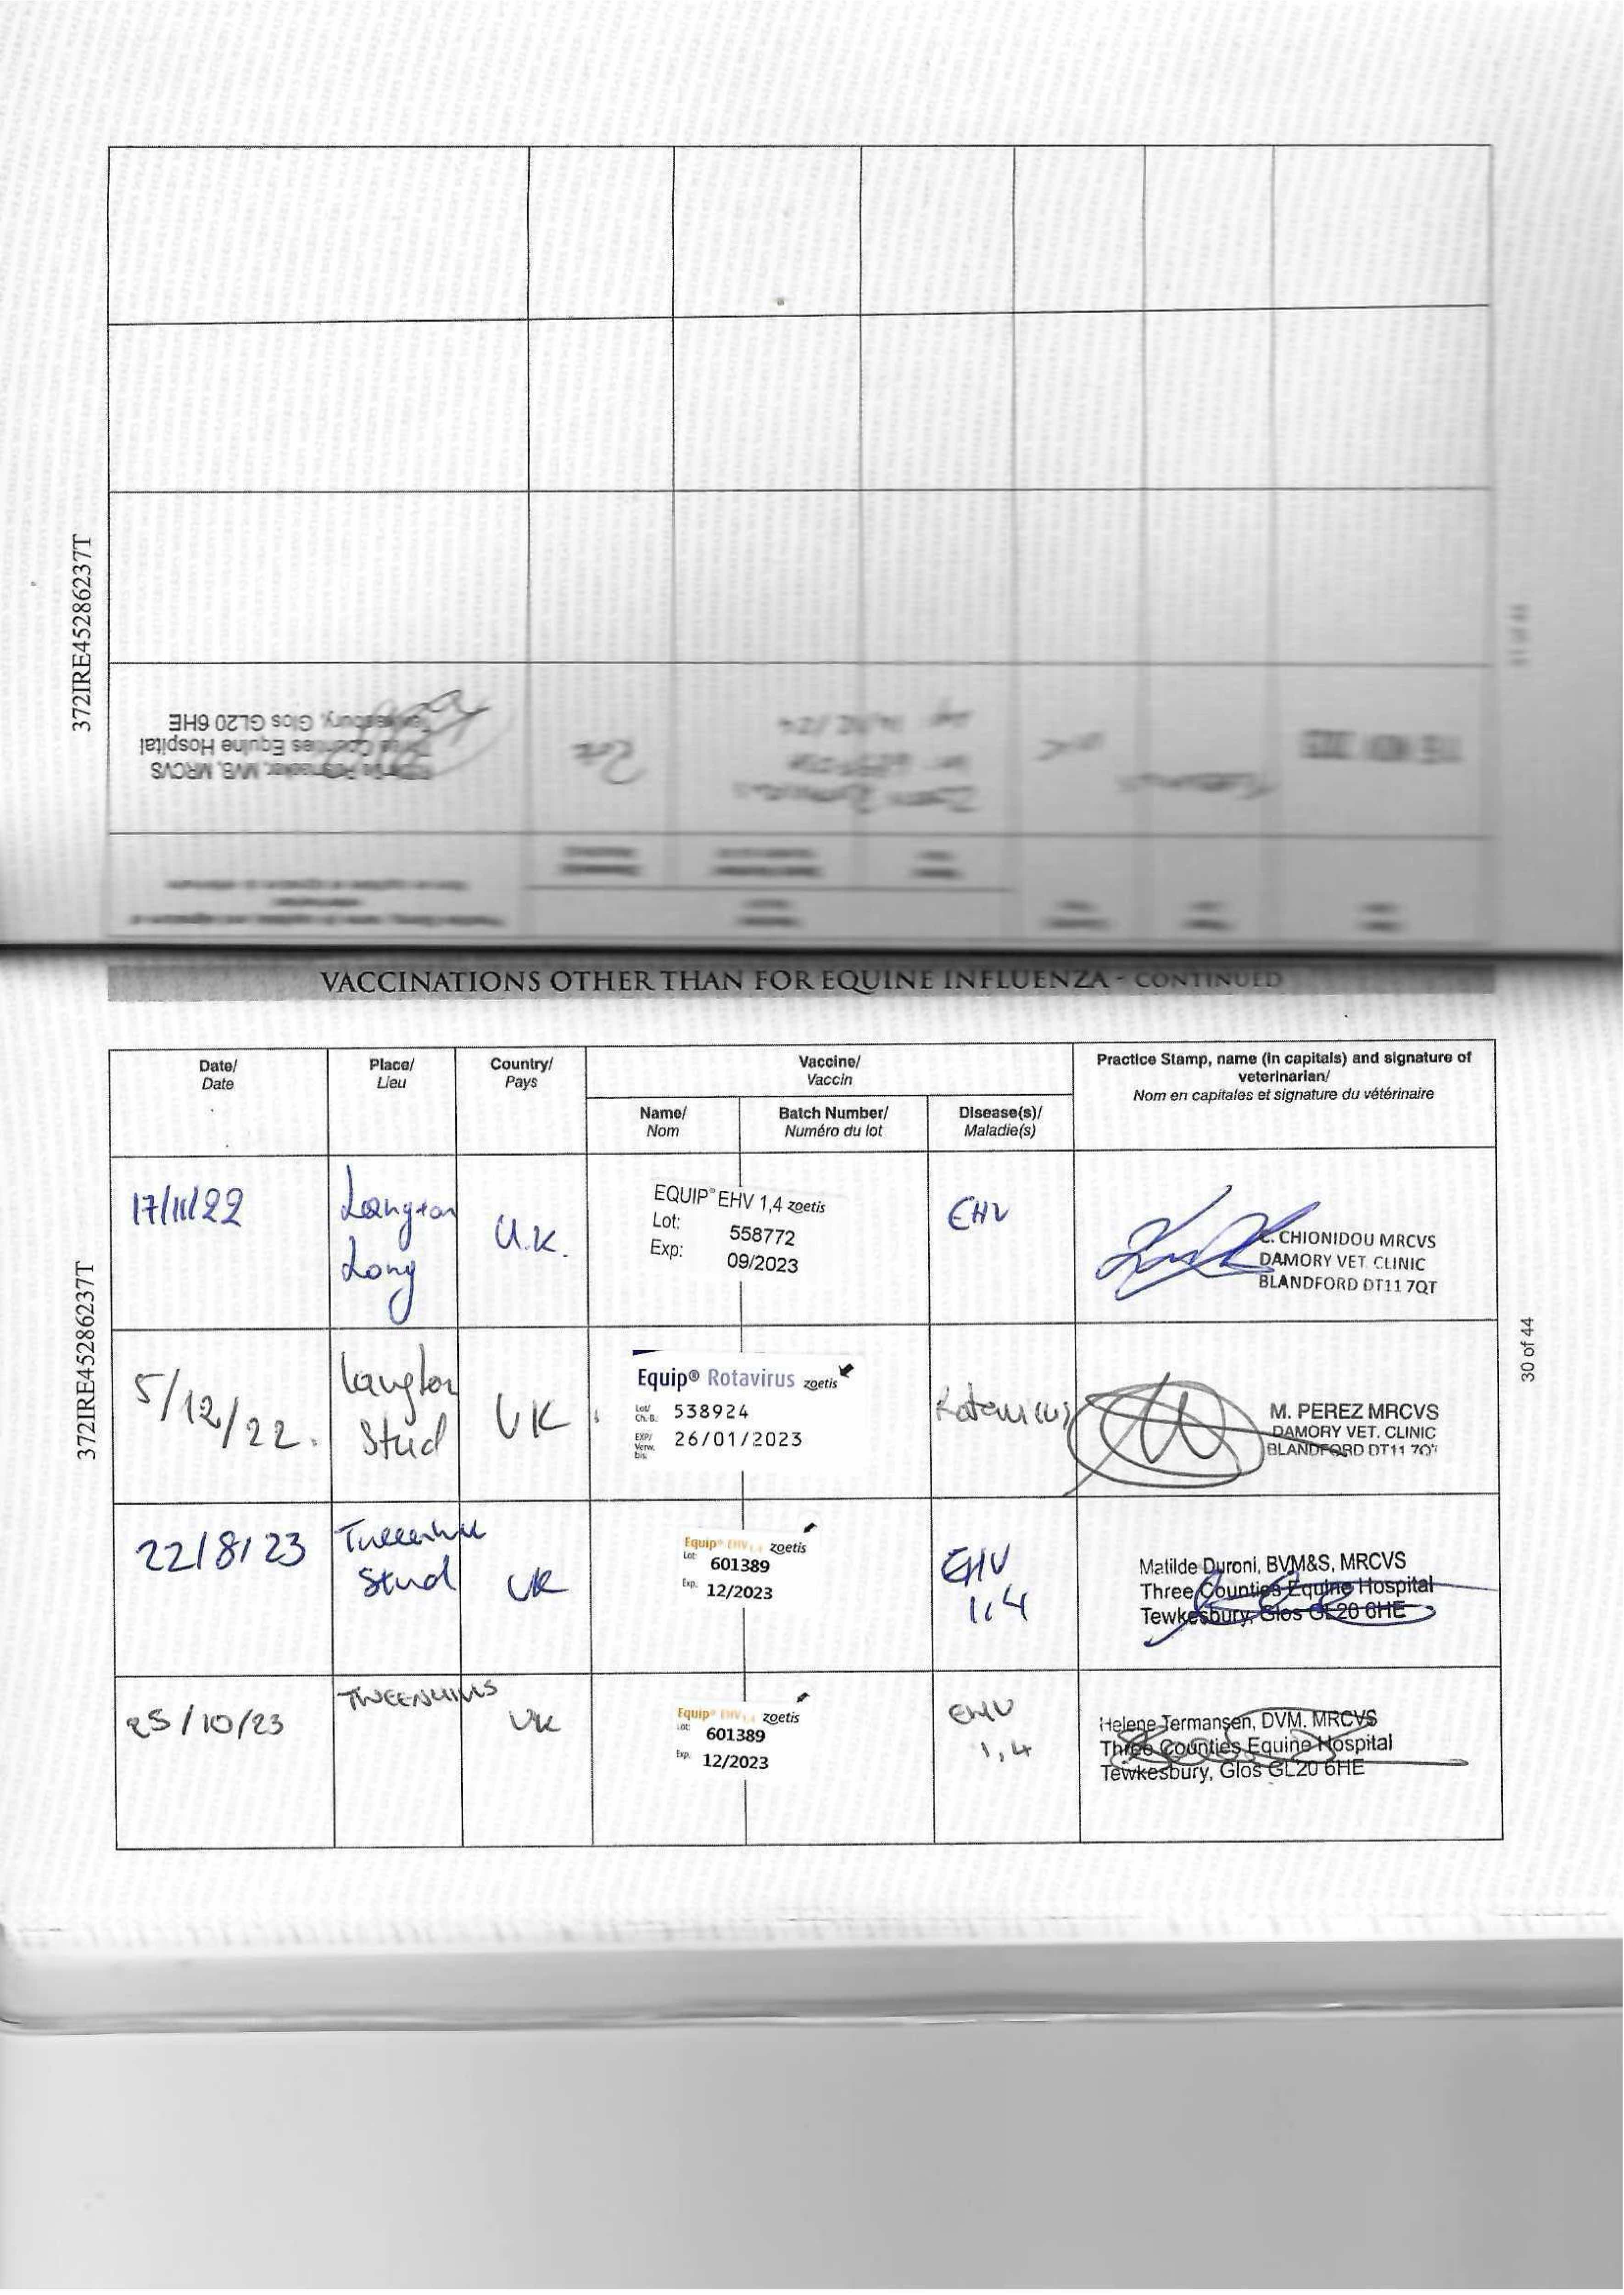 372IRE45286237T
MVB, MRCVS
Equine Hospital
Glos GL20 6HE
VACCINATIONS OTHER THAN FOR EQUINE INFLUENZA - CONTINUED
Date/
Date
Place/
Lieu
Country/
Pays
Vaccine/
Vaccin
Name/
Nom
Batch Number/
Numéro du lot
Disease(s)/
Maladie(s)
Practice Stamp, name (in capitals) and signature of
veterinarian/
Nom en capitales et signature du vétérinaire
17/11/22
Langton
Long
U.K.
EQUIP® EHV 1,4 zoetis
Lot: 558772
Exp: 09/2023
EHV
CHIONIDOU MRCVS
DAMORY VET. CLINIC
BLANDFORD DT11 7QT
5/12/22.
Langton
Stud
UK
Equip® Rotavirus zoetis
Lot/
Ch.B. 538924
EXP/
Verw.
bis: 26/01/2023
Rotavirus
M. PEREZ MRCVS
DAMORY VET. CLINIC
BLANDFORD DT11 7QT
22/8/23
Tweenhill
Stud
UK
Equip® EHV 1,4 zoetis
Lot: 601389
Exp. 12/2023
EHV
1,4
Matilde Duroni, BVM&S, MRCVS
Three Counties Equine Hospital
Tewkesbury, Glos GL20 6HE
25/10/23
TWEENHILLS
UK
Equip® EHV 1,4 zoetis
Lot: 601389
Exp. 12/2023
EHV
1,4
Helene Termansen, DVM, MRCVS
Three Counties Equine Hospital
Tewkesbury, Glos GL20 6HE
372IRE45286237T
30 of 44